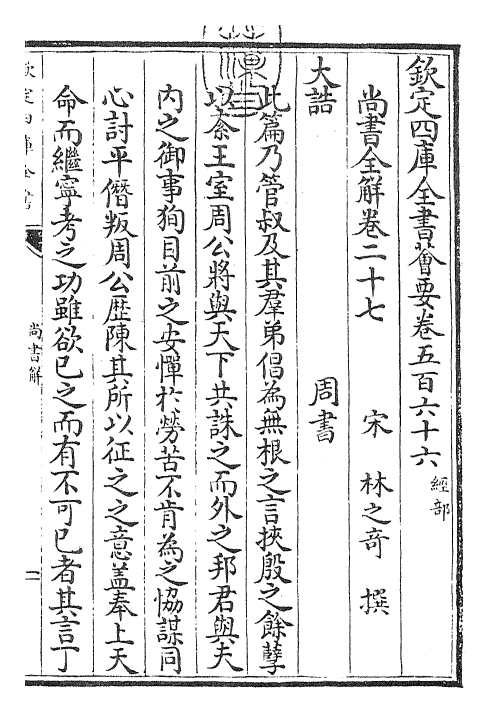 欽定四庫全書薈要卷五百六十六 經部
尚書全解卷二十七 宋 林之奇 撰
大誥 周書
此篇乃管叔及其羣弟倡為無根之言挾殷之餘孽
以紊王室周公將與天下共誅之而外之邦君與夫
内之御事狥目前之安憚於勞苦不肯為之恊謀同
心討平僭叛周公歴陳其所以征之之意盖奉上天
命而繼寧考之功雖欲已之而有不可已者其言丁
欽定四庫全書
尚書解